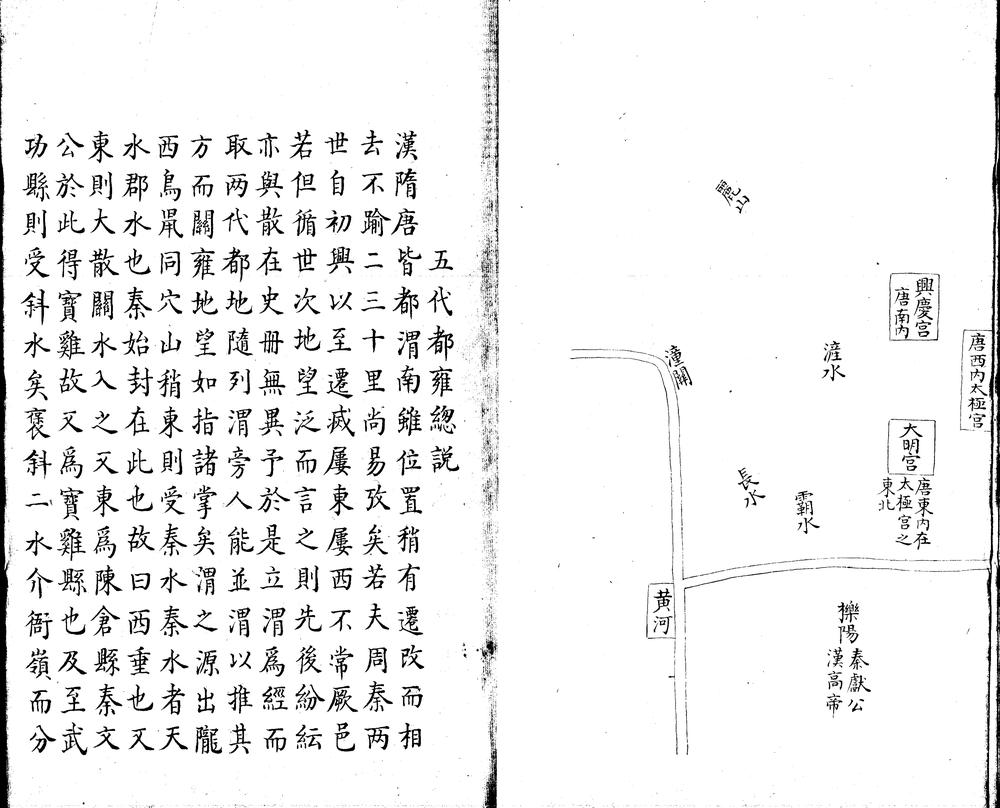 唐西内太極宫
興慶宫
唐南内
大明宫
唐東内在
太極宫之
東北
滻水
霸水
長水
麗山
潼關
黄河
櫟陽
秦獻公
漢高帝
五代都雍總説
漢隋唐皆都渭南雖位置稍有遷改而相
去不踰二三十里尚易攷矣若夫周秦兩
世自初興以至遷滅屢東屢西不常厥邑
若但循世次地望泛而言之則先後紛紜
亦與散在史册無異予於是立渭爲經而
取两代都地隨列渭旁人能並渭以推其
方而關雍地望如指諸掌矣渭之源出隴
西鳥鼠同穴山稍東則受秦水秦水者天
水郡水也秦始封在此也故曰西垂也又
東則大散關水入之又東爲陳倉縣秦文
公於此得寶雞故又爲寶雞縣也及至武
功縣則受斜水矣褒斜二水介衙嶺而分